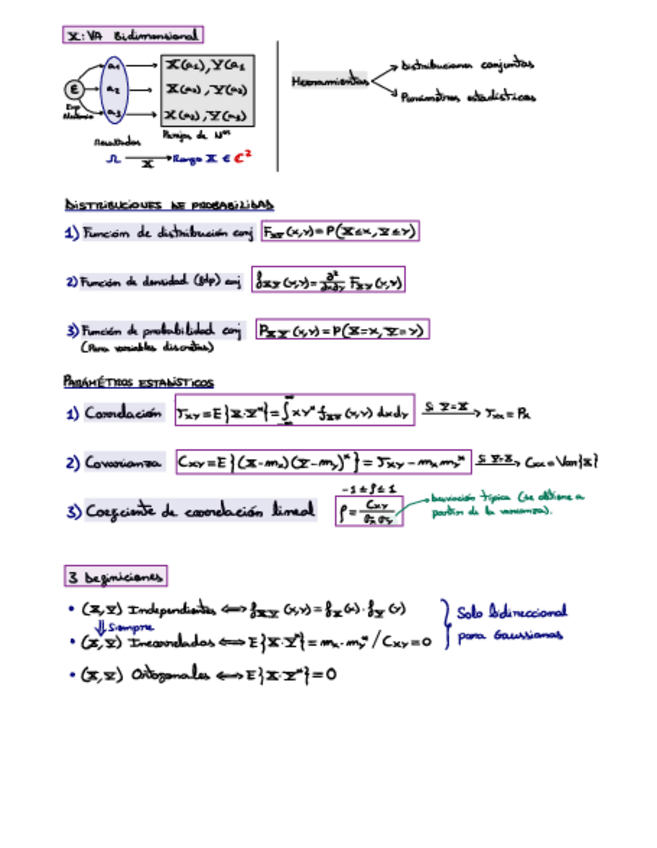 X: VA Bidimensional
E
a1
a2
a3
X(a1), Y(a1
X(a2), Y(a2)
X(a3), Y(a3)
Exp
Aleatorio
Resultados
Parejas de Nos
Ω X → Rango X ∈ C²
Herramientas
Distribuciones conjuntas
Parámetros estadísticos
DISTRIBUCIONES DE PROBABILIDAD
1) Función de distribución conj F_XY (x,y) = P(X≤x, Y≤y)
2) Función de densidad (fdp) conj f_XY (x,y) = ∂²/∂x∂y F_XY (x,y)
3) Función de probabilidad conj P_XY (x,y) = P(X=x, Y=y)
(Para variables discretas)
PARÁMETROS ESTADÍSTICOS
1) Correlación r_xy = E{X·Y*} = ∫ xy* f_XY (x,y) dxdy Si Y=X → r_xx = P_x
2) Covarianza C_xy = E{(X-m_x)(Y-m_y)*} = r_xy - m_x m_y* Si Y=X → C_xx = Var{X}
-1 ≤ ρ ≤ 1
3) Coeficiente de correlación lineal ρ = C_xy / σ_x σ_y
Desviación típica (se obtiene a
partir de la varianza).
3 Definiciones
• (X,Y) Independientes ⟺ f_XY (x,y) = f_X(x) · f_Y(y)
⇓ Siempre
• (X,Y) Incorreladas ⟺ E{X·Y*} = m_x · m_y* / C_xy = 0
• (X,Y) Ortogonales ⟺ E{X·Y*} = 0
Solo bidireccional
para Gaussianas